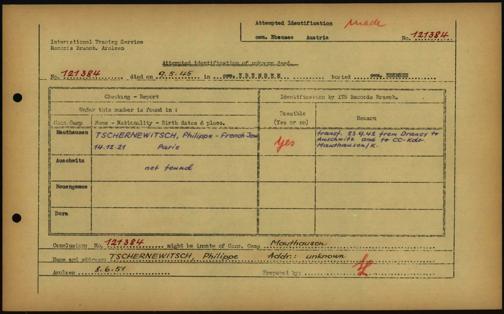 Attempted Identification made
International Tracing Service
Records Branch, Arolsen
cem. Ebensee Austria No. 121384
Attempted identification of unknown dead.
No. 121384 died on 9.5.45 in cem. EBENSEE buried cem. EBENSEE
Checking - Report
Identification by ITS Records Branch.
Under this number is found in :
Conc.Camp Name - Nationality - Birth dates & place.
Traceable (Yes or no)
Remark
Mauthausen TSCHERNEWITSCH, Philippe - French Jew
14.12.21 Paris
yes
transf. 23.9.42 from Drancy to
Auschwitz and to CC-Kdr.
Mauthausen/K.
Auschwitz
not found
Neuengamme
Dora
Conclusion: No. 121384 might be inmate of Conc. Camp Mauthausen
Name and address: TSCHERNEWITSCH, Philippe Addr.: unknown
Arolsen 8.6.51 Prepared by: